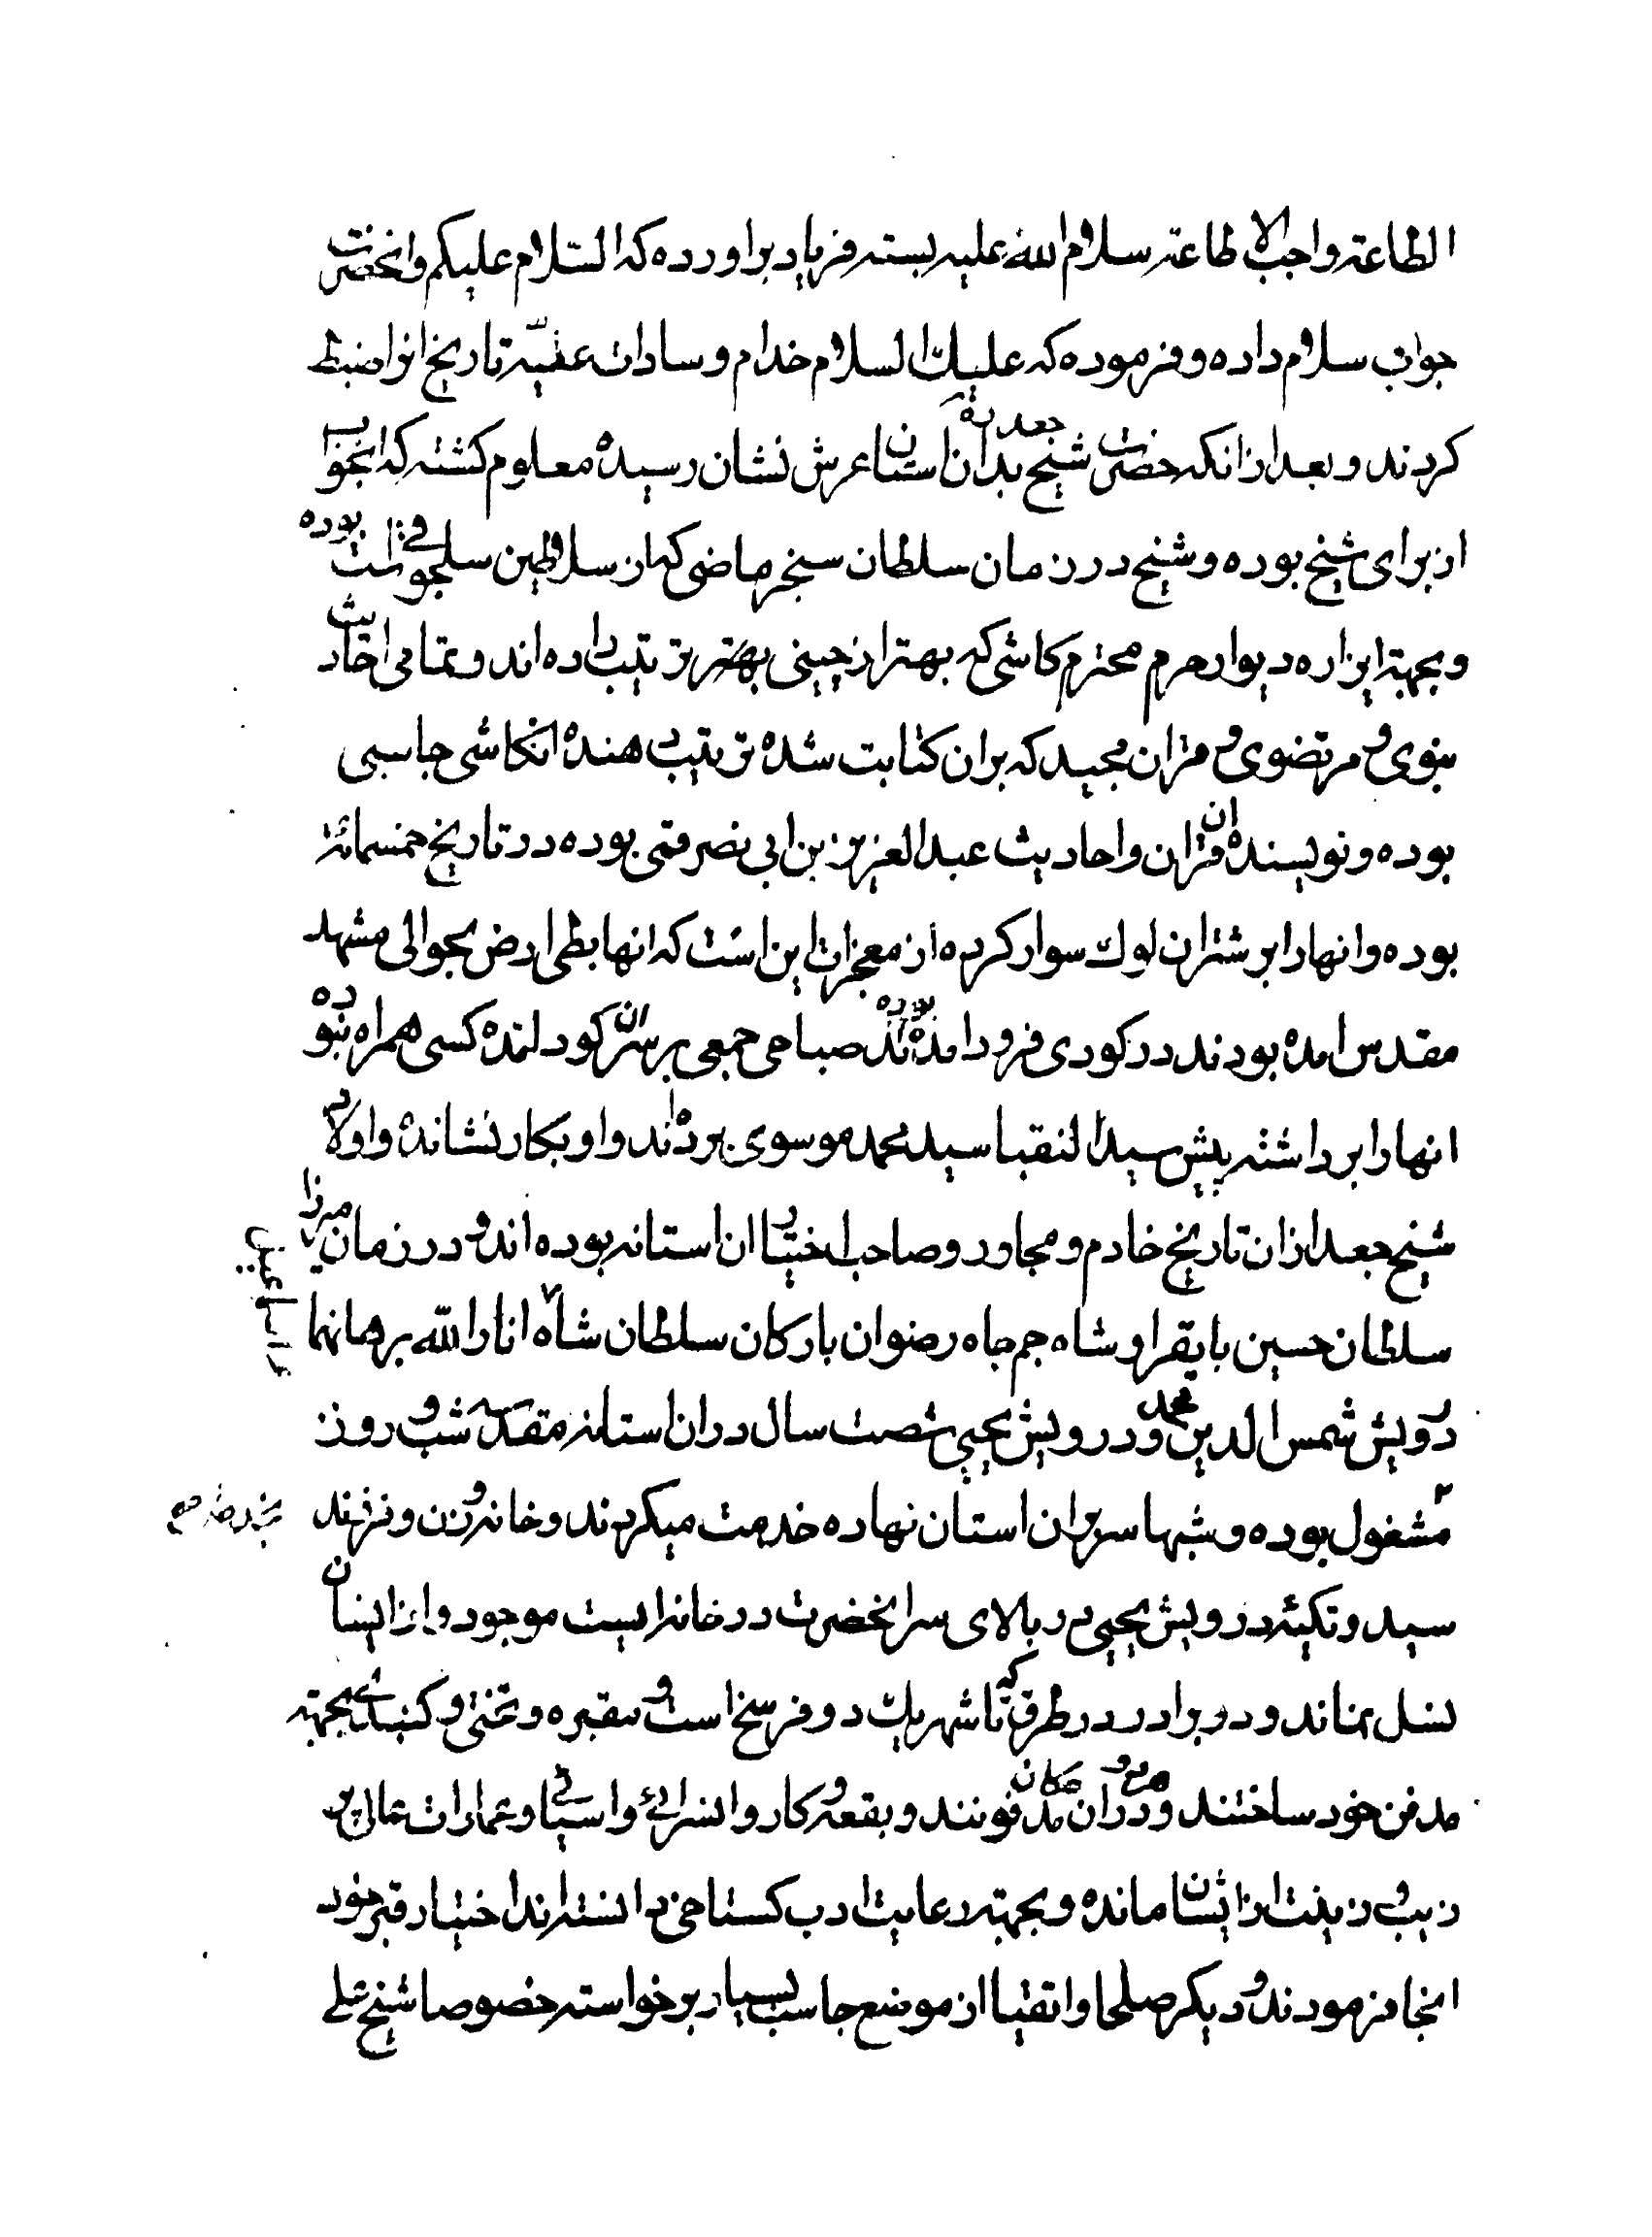 الطاعة واجب الاطاعة سلام الله علیه بسته فریاد براورده که السلام علیکم وانحضرت
جواب سلام داده و فرموده که علیک السلام خدام و سادات عتبه تاریخ انرا ضبط
کردند و بعد ازانکه حضرت شیخ جعد بدان استان عرش نشان رسیده معلوم کشته که انجواب
از برای شیخ بوده و شیخ در زمان سلطان سنجر ماضی که از سلاطین سلجوقی است بوده
و بجهة ازاره دیوار حرم محترم کاشی که بهتر از چینی بهتر ترتیب داده اند و تمامی احادیث
نبوی و مرتضوی و قران مجید که بران کتابت شده ترتیب دهنده انکاشی جاسبی
بوده و نویسنده ان قران واحادیث عبد العزیز بن ابی نصر قمی بوده در تاریخ خمسمائه
بوده وانها را بر شتران لوک سوار کرده از معجزات این است که انها بطی ارض بحوالی مشهد
مقدس امده بودند در کودی فرود امده بوده اند صباحی جمعی بر سر ان کود امده کسی همراه نبوده
انها را برداشته پیش سید النقبا سید محمد موسوی برده اند و او بکار نشانده و اولاد
شیخ جعد ازان تاریخ خادم و مجاور و صاحب اختیار ان استانه بوده اند و در زمان میرزا
سلطان حسین بایقرا و شاه جم جاه رضوان بارکان سلطان شاه انار الله برهانهما
درویش شمس الدین محمد و درویش یحیی شصت سال دران استانه مقدسه شب و روز
مشغول بوده و شبها سر بران استان نهاده خدمت میکردند و خانه و زن و فرزند
سید و تکیه درویش یحیی در بالای سر انحضرت در خانه ایست موجود و از ایشان
نسل نماند و دو برادر در طرق که تا شهر یک دو فرسخ است و مقبره و تختی و کنبدی بجهته
مدفن خود ساختند و در ان مکان مدفونند و بقعه و کاروانسرای و اسیائی و عمارات عالی پر
زیب و زینت از ایشان مانده و بجهة رعایت ادب کستاخی دانسته اند اختیار قبر خود
انجا فرمودند و دیکر صلحا و اتقیا از موضع جاسب بسیار برخواسته خصوصا شیخ علی